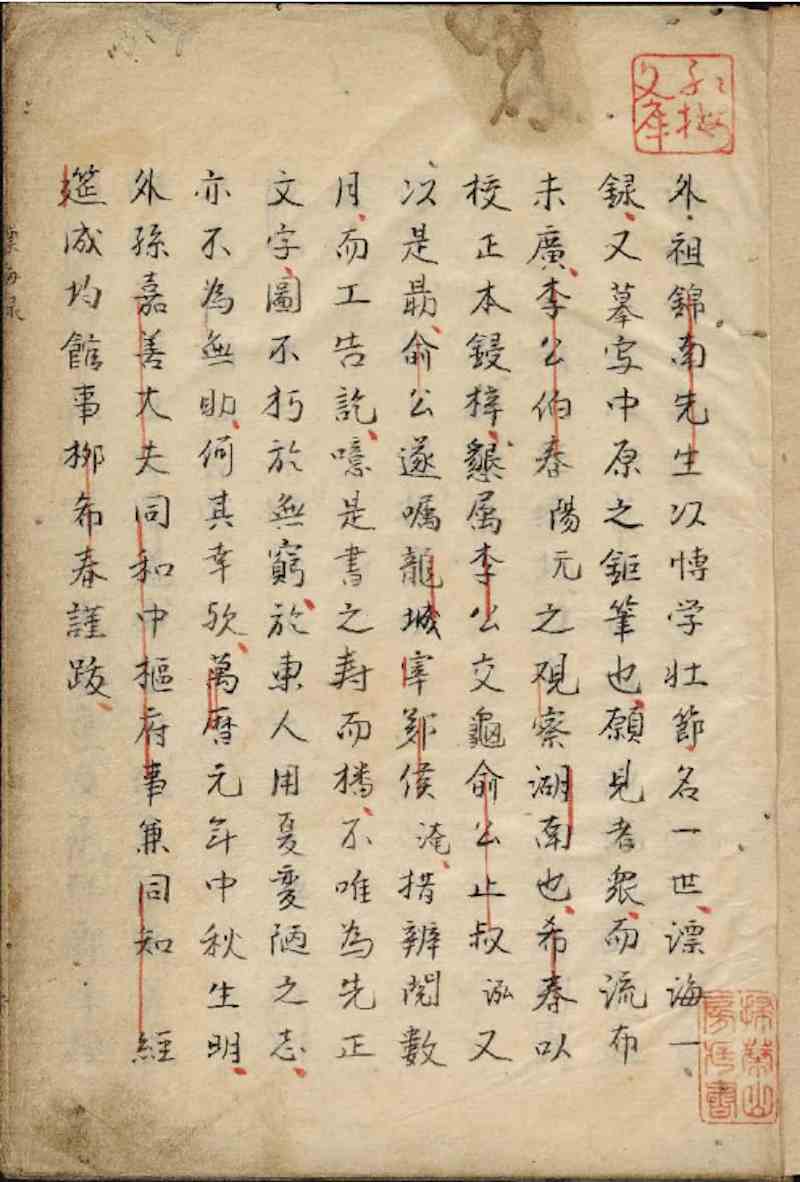 外祖錦南先生以博学壮節名一世漂海一
録又摹写中原之鉅筆也願見者衆而流布
未廣李公伯春陽元之观察湖南也希春以
校正本鋟梓懇属李公交龜俞公止叔泓又
以是勗俞公遂嘱龍城宰鄭侯淹措辨閲數
月而工告訖噫是書之寿而播不唯為先正
文字圖不朽於無窮於東人用夏変陋之志
亦不為無助何其幸欤萬暦元年中秋生明
外孫嘉善大夫同和中樞府事兼同知 經
筵成均館事柳希春謹跋